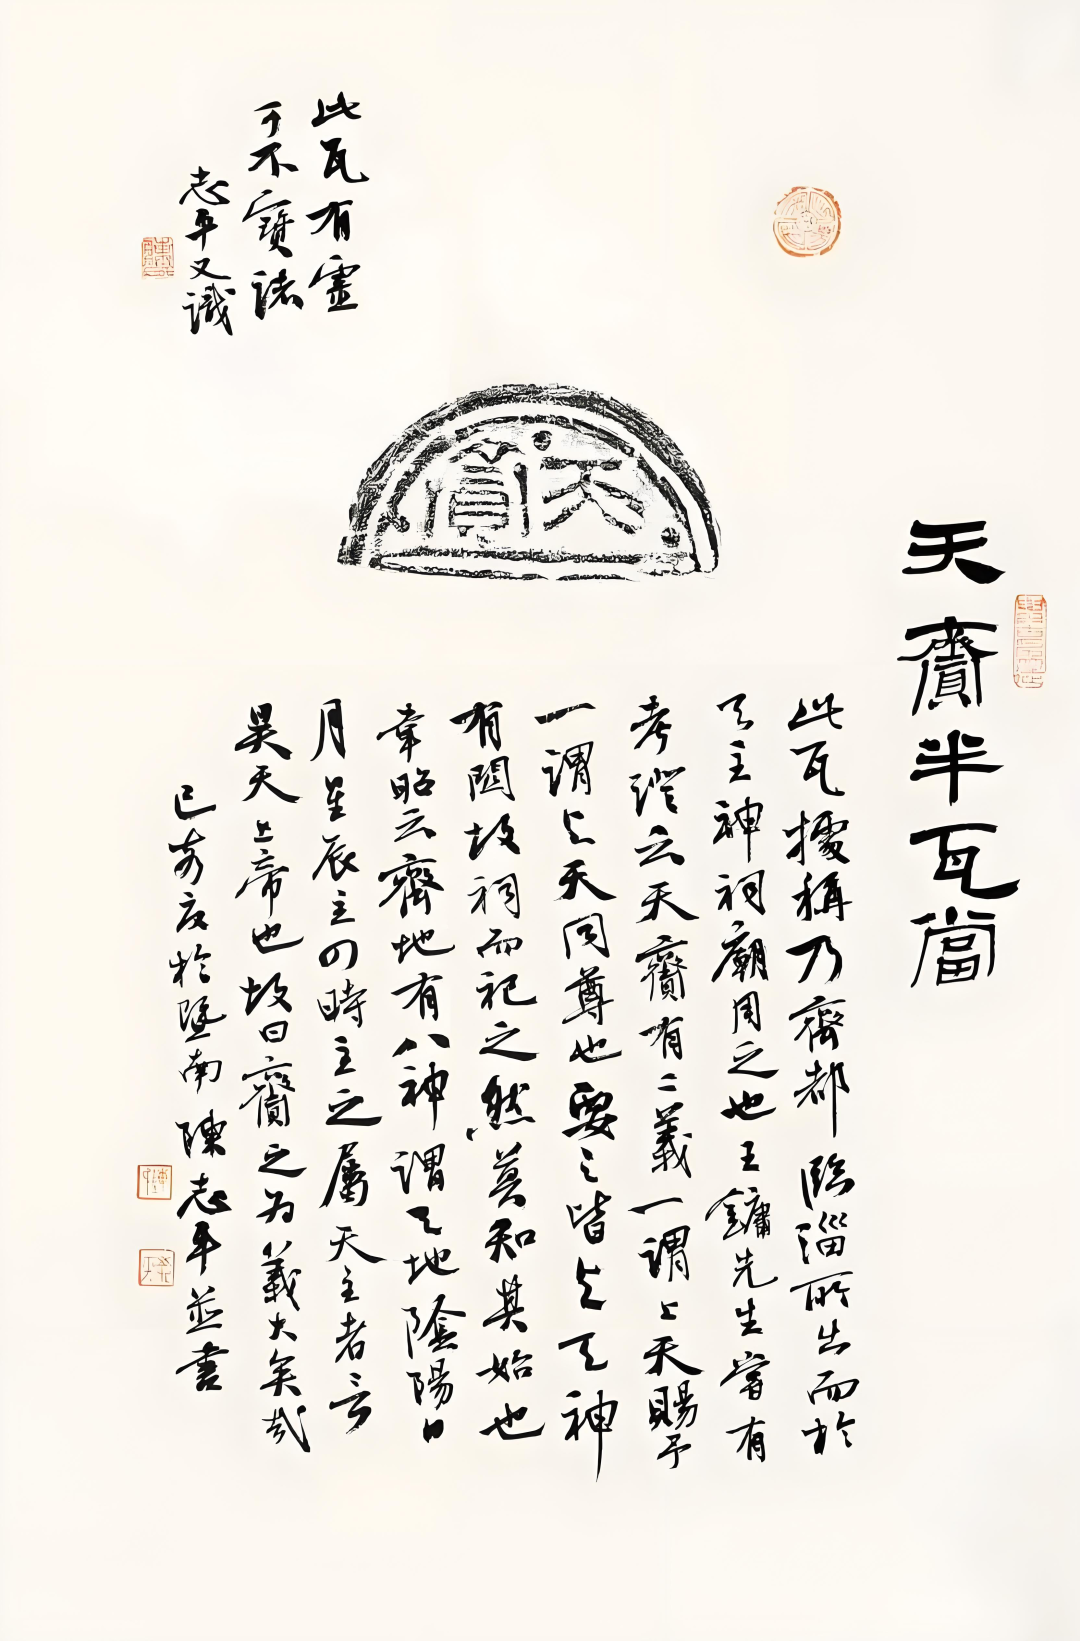 天齎半瓦當
此瓦據稱乃齊都臨淄所出而於
天主神祠廟用之也王鏞先生嘗有
考證云天齎有二義一謂上天賜予
一謂與天同尊也要之皆與天神
有關故祠而祀之然莫知其始也
韋昭云齊地有八神謂天地陰陽日
月星辰主四時主之屬天主者言
昊天上帝也故曰齎之为義大矣哉
己亥夜於暨南陳志平並書
此瓦有靈
可不寶諸
志平又識
天齎